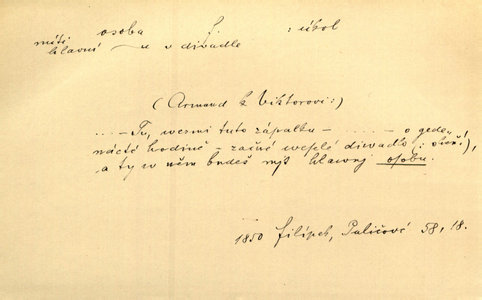 osoba f. : úkol
míti
hlavní — u v divadle
(Armand k Viktorovi:)
.... – Ty, wezmi tuto zápalku – .... – o jeden
nácté hodině – začné weselé diwadlo (: oheň!),
a ty w něm budeš mjt hlawnj osobu.
1850 Filípek, Paličové 58, 18.